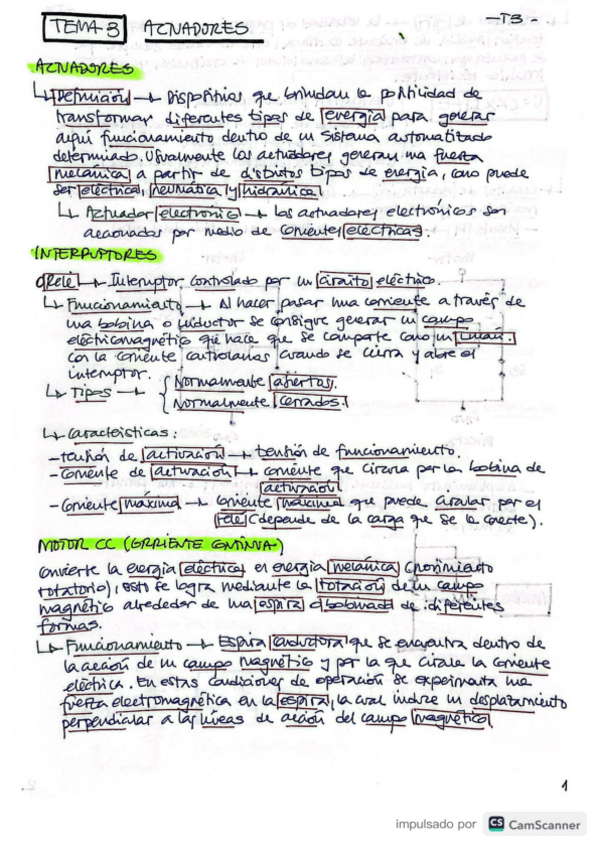 TEMA 3 ACTUADORES - T3 -
ACTUADORES
↳ Definición → Dispositivos que brindan la posibilidad de
transformar diferentes tipos de energía para generar
algún funcionamiento dentro de un sistema automatizado
determinado. Usualmente los actuadores generan una fuerza
mecánica a partir de distintos tipos de energía, como puede
ser eléctrica, neumática y hidráulica.
↳ Actuador electrónico → los actuadores electrónicos son
accionados por medio de corrientes eléctricas.
INTERRUPTORES
Relé → Interruptor controlado por un circuito eléctrico.
↳ Funcionamiento → Al hacer pasar una corriente a través de
una bobina o inductor se consigue generar un campo
electromagnético que hace que se comporte como un imán.
con la corriente controlamos cuando se cierra y abre el
interruptor.
↳ Tipos → { Normalmente abiertos.
Normalmente cerrados.
↳ Características:
- tensión de activación → tensión de funcionamiento.
- corriente de activación → corriente que circula por la bobina de
activación
- corriente máxima → corriente máxima que puede circular por el
relé (depende de la carga que se le conecte).
MOTOR CC (CORRIENTE CONTINUA)
convierte la energía eléctrica en energía mecánica (movimiento
rotatorio), esto se logra mediante la rotación de un campo
magnético alrededor de una espira o bobinado de diferentes
formas.
↳ Funcionamiento → Espira conductora que se encuentra dentro de
la acción de un campo magnético y por la que circula la corriente
eléctrica. En estas condiciones de operación se experimenta una
fuerza electromagnética en la espira, la cual induce un desplazamiento
perpendicular a las líneas de acción del campo magnético.
1
impulsado por CS CamScanner